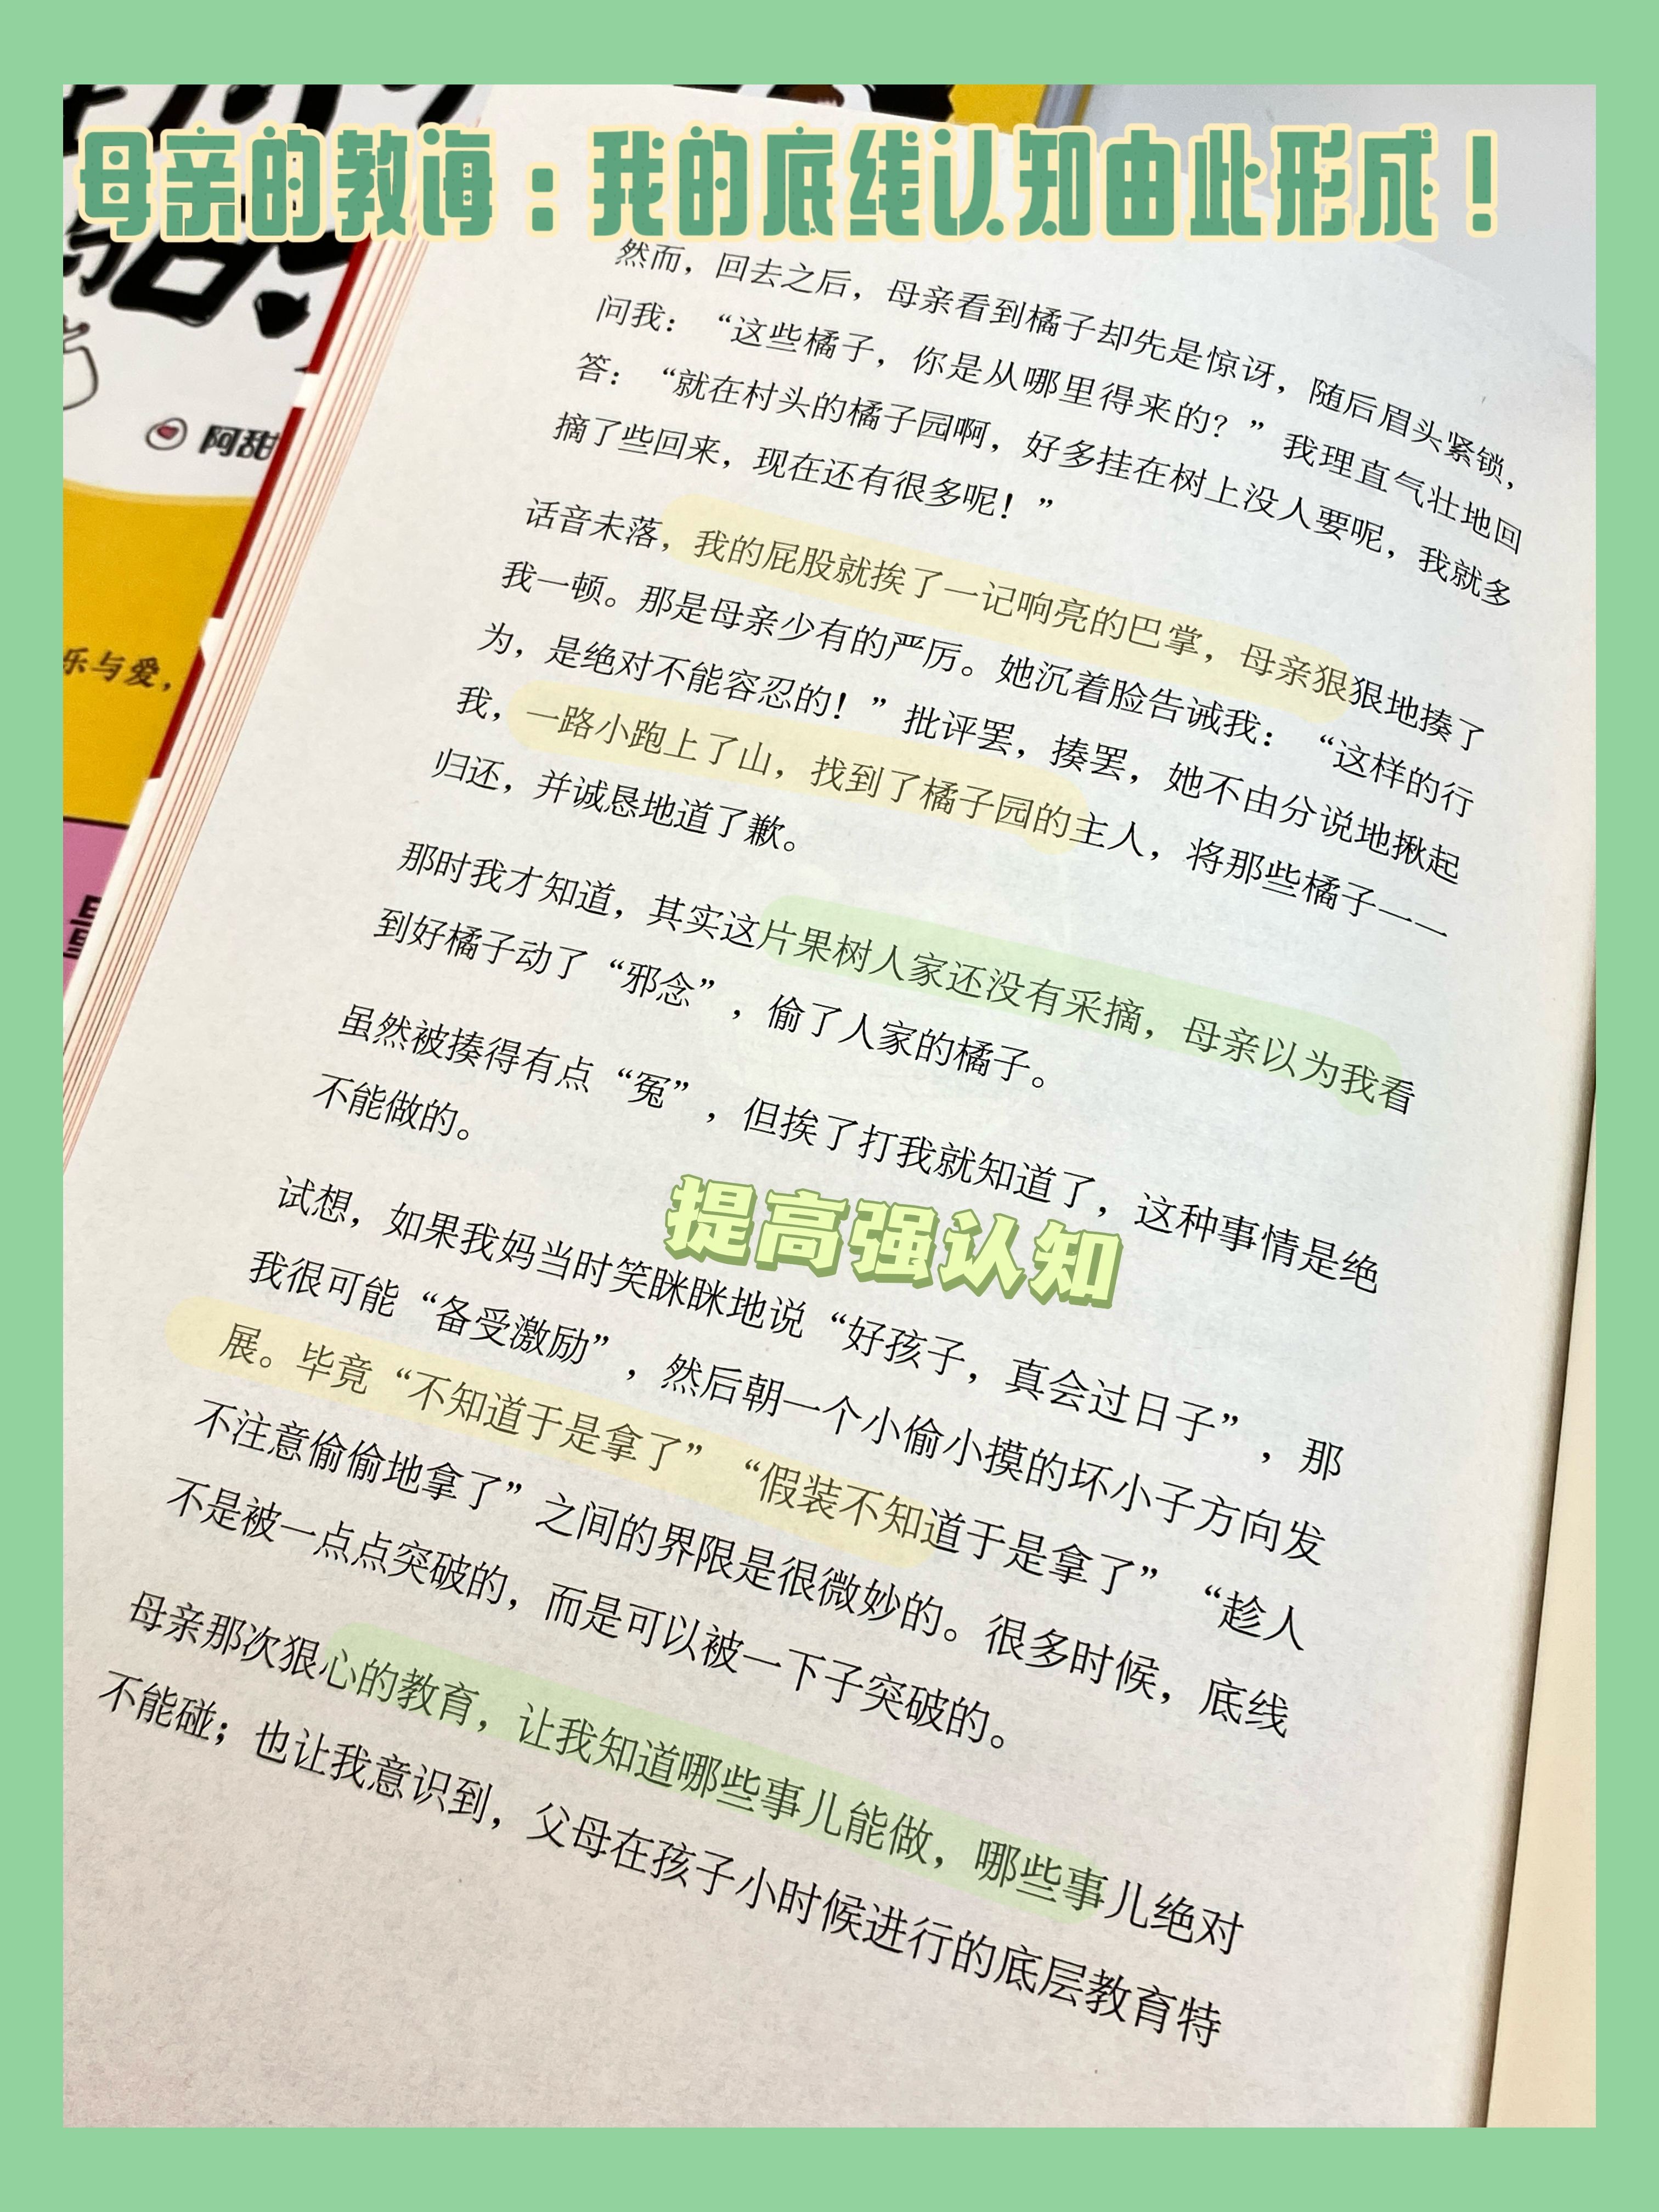 母亲的教诲：我的底线认知由此形成！
阿甜
乐与爱，
然而，回去之后，母亲看到橘子却先是惊讶，随后眉头紧锁，
问我：“这些橘子，你是从哪里得来的？”我理直气壮地回
答：“就在村头的橘子园啊，好多挂在树上没人要呢，我就多
摘了些回来，现在还有很多呢！”
话音未落，我的屁股就挨了一记响亮的巴掌，母亲狠狠地揍了
我一顿。那是母亲少有的严厉。她沉着脸告诫我：“这样的行
为，是绝对不能容忍的！”批评罢，揍罢，她不由分说地揪起
我，一路小跑上了山，找到了橘子园的主人，将那些橘子一一
归还，并诚恳地道了歉。
那时我才知道，其实这片果树人家还没有采摘，母亲以为我看
到好橘子动了“邪念”，偷了人家的橘子。
虽然被揍得有点“冤”，但挨了打我就知道了，这种事情是绝
不能做的。
提高强认知
试想，如果我妈当时笑眯眯地说“好孩子，真会过日子”，那
我很可能“备受激励”，然后朝一个小偷小摸的坏小子方向发
展。毕竟“不知道于是拿了”“假装不知道于是拿了”“趁人
不注意偷偷地拿了”之间的界限是很微妙的。很多时候，底线
不是被一点点突破的，而是可以被一下子突破的。
母亲那次狠心的教育，让我知道哪些事儿能做，哪些事儿绝对
不能碰；也让我意识到，父母在孩子小时候进行的底层教育特